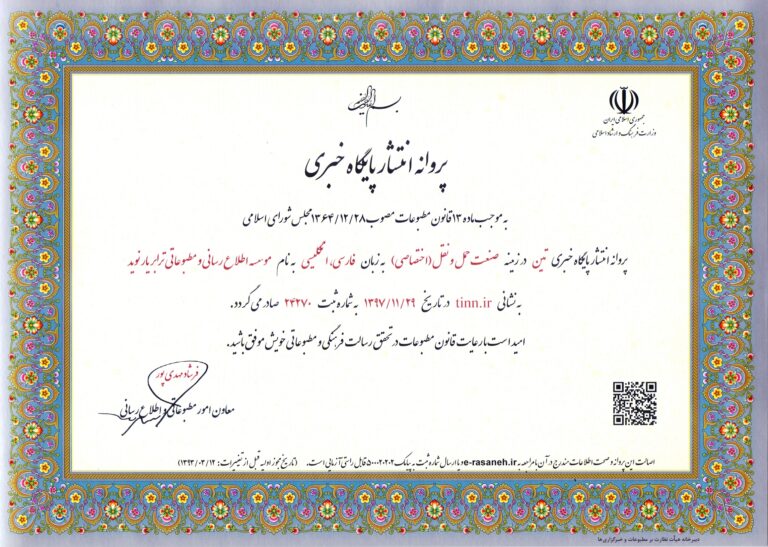 بسم الله الرحمن الرحیم
جمهوری اسلامی ایران
وزارت فرهنگ و ارشاد اسلامی
پروانه انتشار پایگاه خبری
به موجب ماده ۱۳ قانون مطبوعات مصوب ۱۳۶۴/۱۲/۲۸ مجلس شورای اسلامی
پروانه انتشار پایگاه خبری تین در زمینه صنعت حمل و نقل (اختصاصی) به زبان فارسی، انگلیسی به نام موسسه اطلاع رسانی و مطبوعاتی ترابر یار نوید
به نشانی tinn.ir در تاریخ ۱۳۹۷/۱۱/۲۹ به شماره ثبت ۲۴۲۷۰ صادر می گردد.
امید است با رعایت قانون مطبوعات در تحقق رسالت فرهنگی و مطبوعاتی خویش موفق باشید.
فرشاد مهدی پور
معاون امور مطبوعاتی و اطلاع رسانی
اصالت این پروانه و صحت اطلاعات مندرج در آن با مراجعه به e-rasaneh.ir و یا ارسال شماره ثبت به پیامک ۵۰۰۰۲۰۲۰۲ قابل راستی آزمایی است. (تاریخ مجوز اولیه قبل از تغییرات: ۱۳۹۳/۰۳/۱۲)
دبیرخانه هیأت نظارت بر مطبوعات و خبرگزاری‌ها